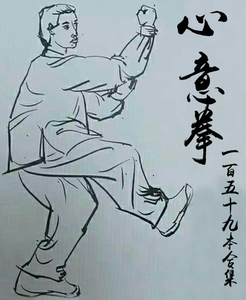 心意拳
一百五十九本合集